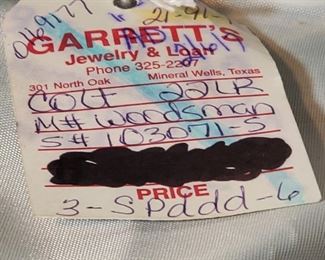 0169177
21-91-
GARRETT'S
Jewelry & Loan
Phone 325-2207
301 North Oak Mineral Wells, Texas
COLT 22LR
M# Woodsman
S# 103071-S
PRICE
3-SPddd-6